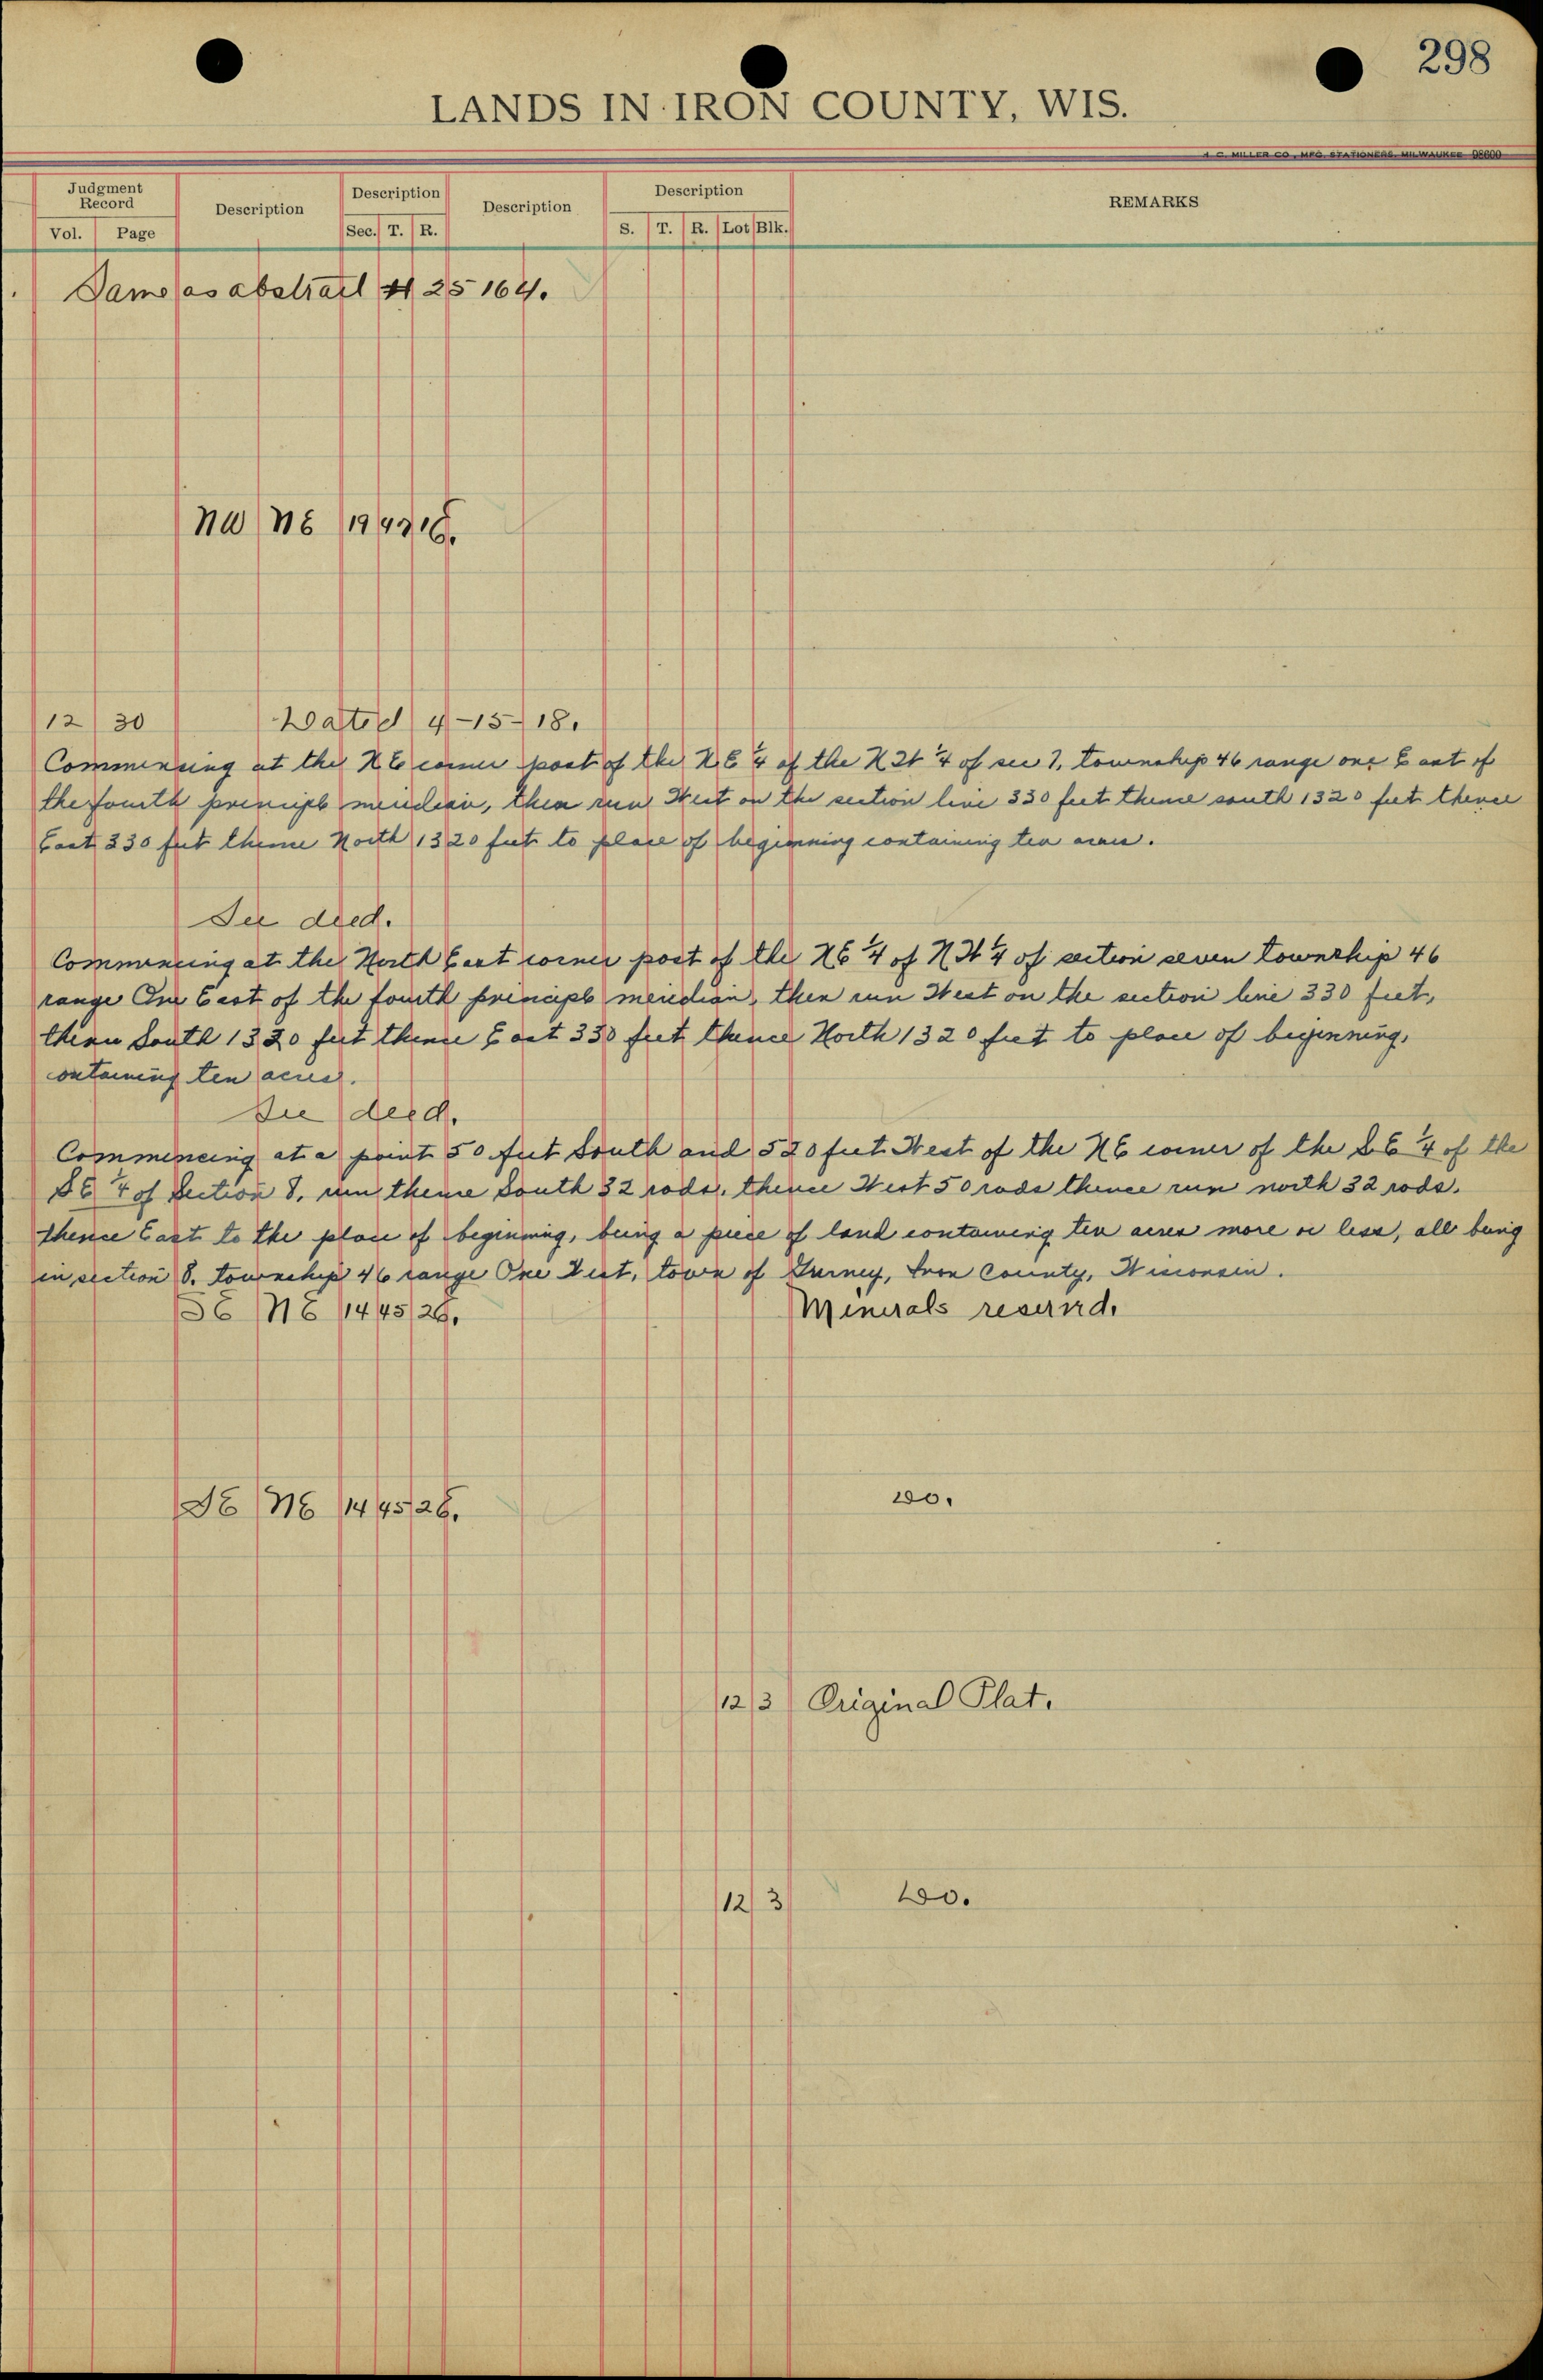 298
LANDS IN IRON COUNTY, WIS.
H. C. MILLER CO., MFG. STATIONERS, MILWAUKEE
Judgment Record Description Description Description Description REMARKS
Vol. Page Sec. T. R. S. T. R. Lot Blk.
Same as abstract # 25164.
NW NE 19
12 30 Dated 4-15-18.
Commencing at the NE corner post of the NE ¼ of the NW ¼ of sec 7, township 46 range one East of
the fourth principle meridian, then run West on the section line 330 feet thence south 1320 feet thence
East 330 feet thence North 1320 feet to place of beginning containing ten acres.
See deed.
Commencing at the North East corner post of the NE ¼ of NW ¼ of section seven township 46
range One East of the fourth principle meridian, then run West on the section line 330 feet,
then South 1320 feet thence East 330 feet thence North 1320 feet to place of beginning,
containing ten acres.
See deed.
Commencing at a point 50 feet South and 520 feet West of the NE corner of the SE ¼ of the
SE ¼ of Section 8, run thence South 32 rods, thence West 50 rods thence run north 32 rods.
thence East to the place of beginning, being a piece of land containing ten acres more or less, all being
in section 8, township 46 range One West, town of Gurney, Iron County, Wisconsin.
SE NE 14 45 2E. Minerals reserved.
SE NE 14 45 2E. Do.
12 3 Original Plat.
12 3 Do.